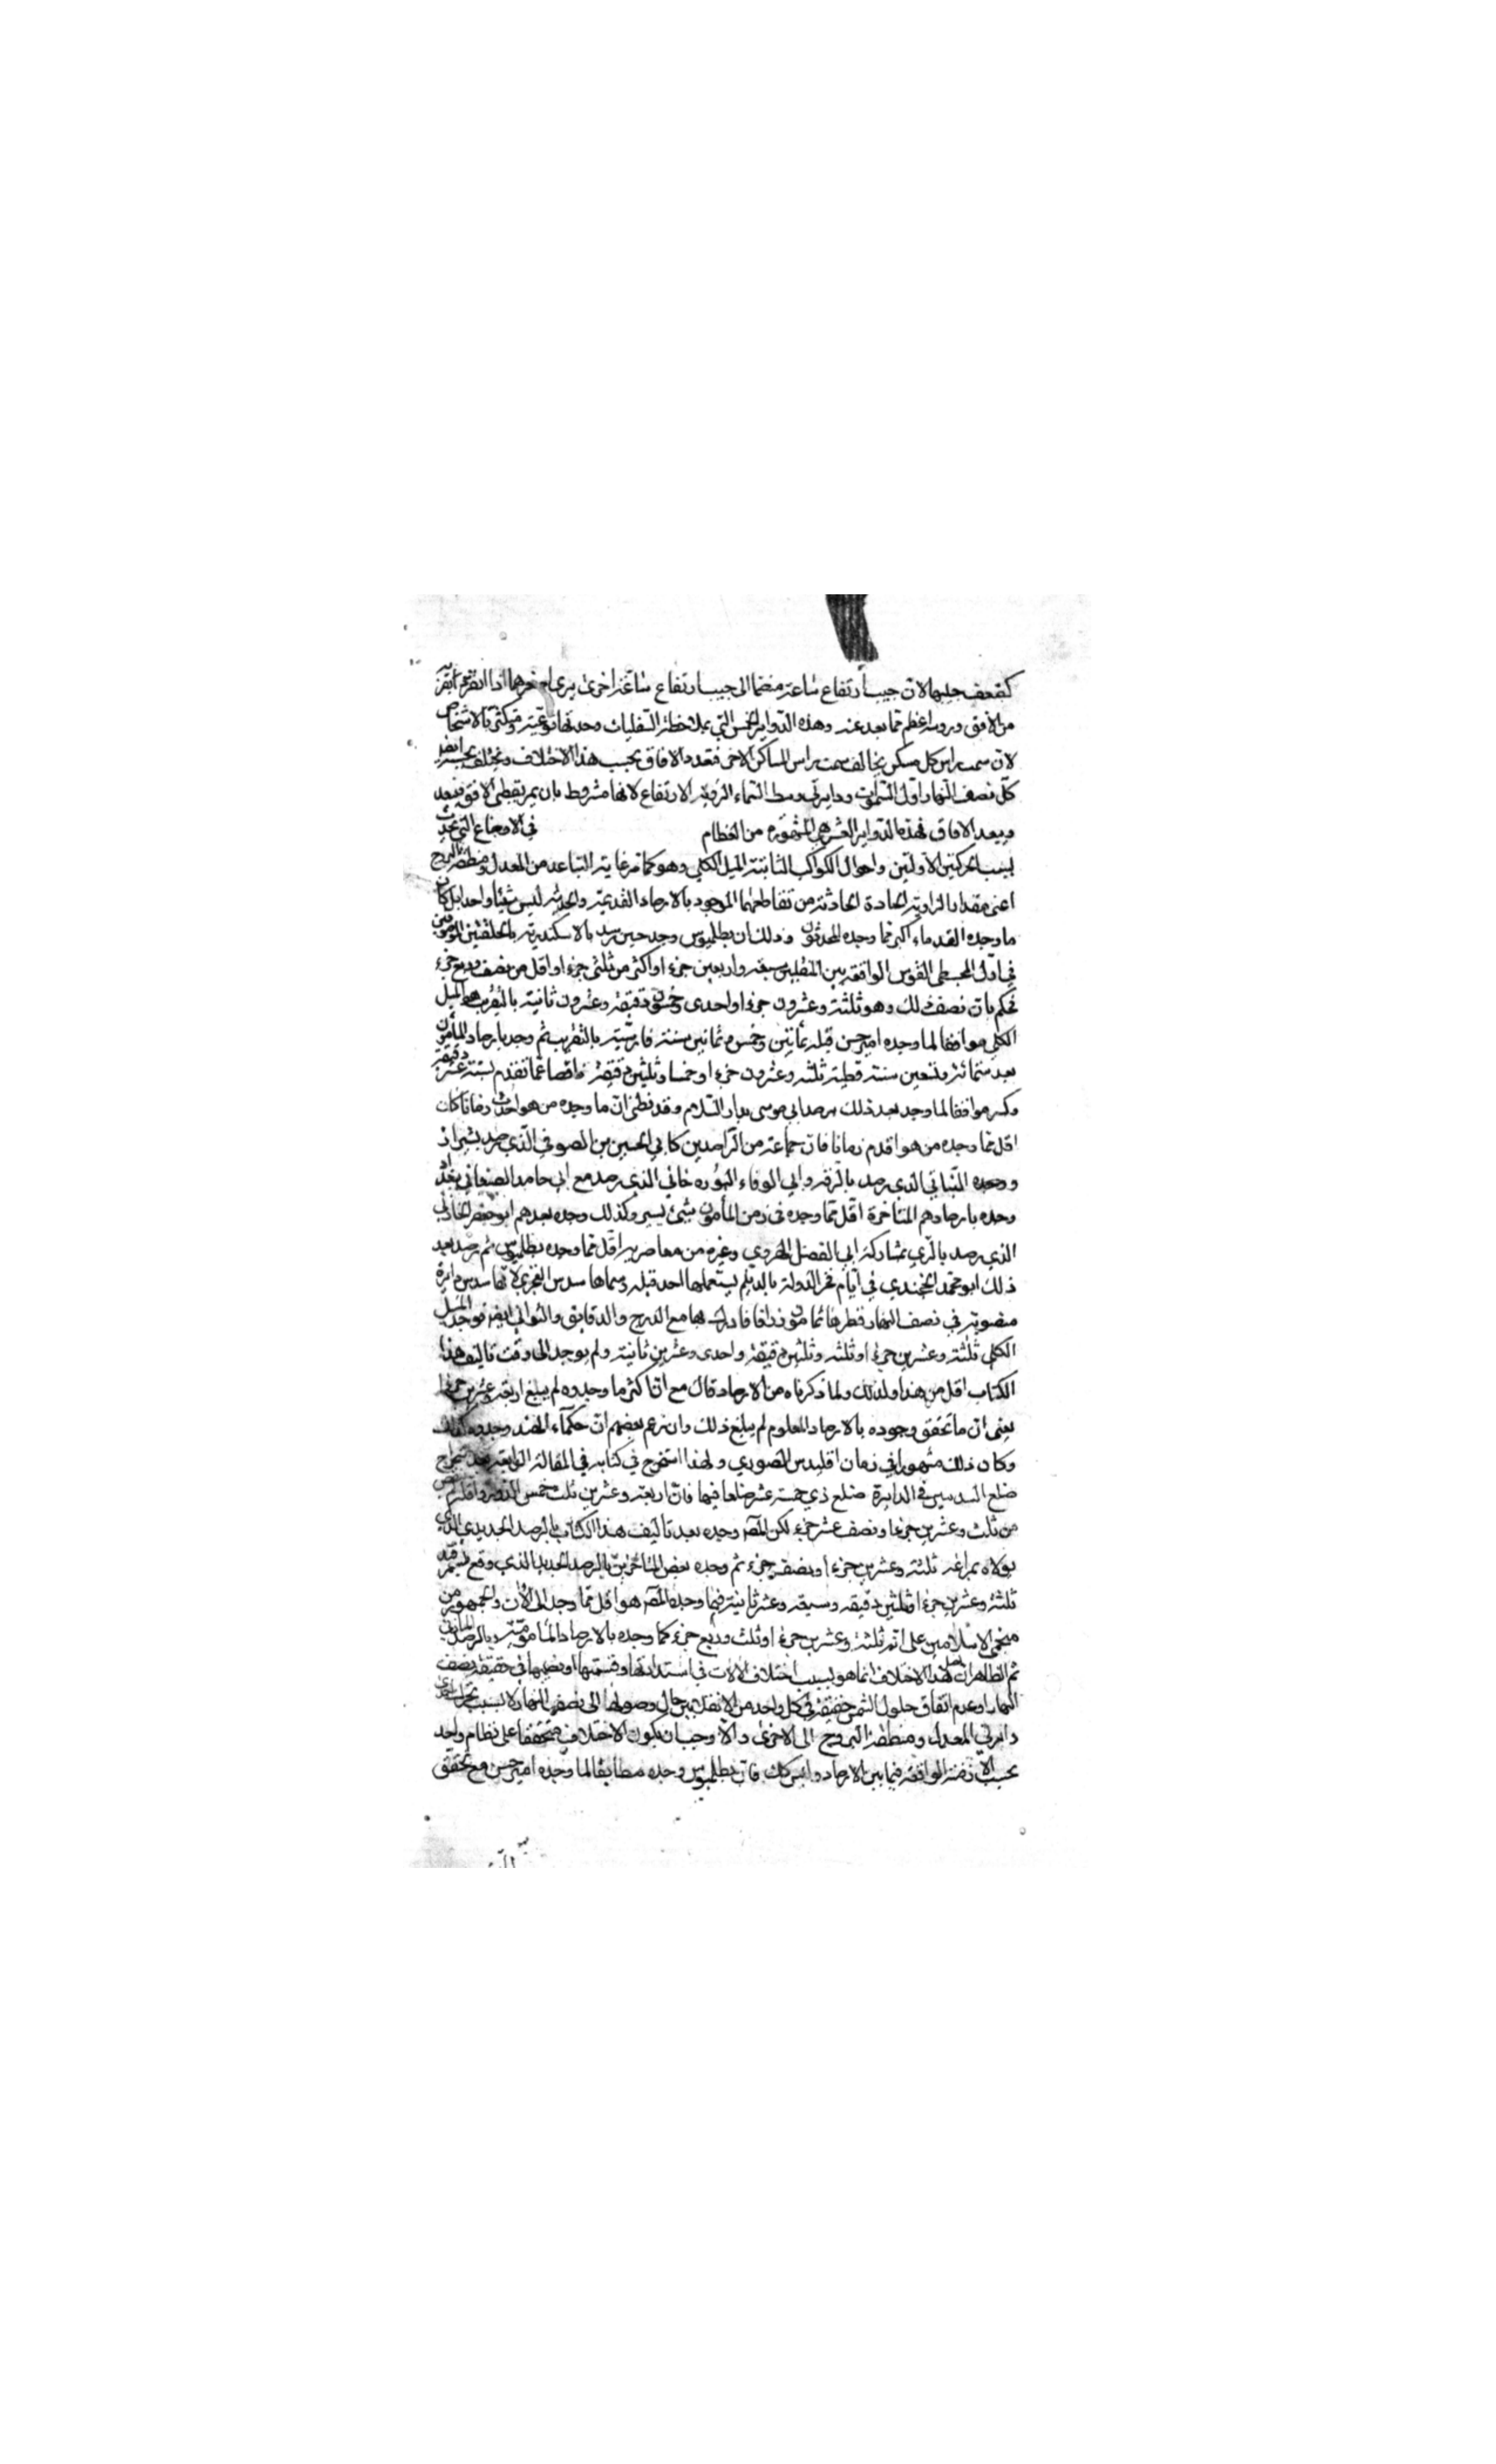 لان جيب ارتفاع ساعة منضما الى جيب ارتفاع ساعة اخرى
من الافق وبروسه اعظم مما بعد عنه وهذه الدواير الخمس التي بملاحظة السفليات وحدتها نوعية وتكثر بالاشخاص
لان سمت راس كل مسكن يخالف سمت راس المساكن الاخر فتعدد الافاق بحسب هذا الاختلاف ويختلف بحسبه ايضا
كل نصف النهار واول السموت ودايرتي وسط السماء الرؤية لا الارتفاع لانها مشروط بان يمر بقطبي الافق فبتعدد
وبتعدد الافاق فهذه الدواير العشر هي المشهورة من العظام في الاوضاع التي تحدث
بسبب الحركتين الاوليين واحوال الكواكب الثابتة الميل الكلي وهو كما مر غاية التباعد من المعدل ومنطقة البروج
اعني مقدار الزاوية الحادة الحادثة من تقاطعهما الموجود بالارصاد القديمة والحديثة ليس شيئا واحدا بل كان
ما وجده القدماء اكبر مما وجده المحدثون وذلك ان بطلميوس وجد حين رصد بالاسكندرية بالحلقتين الموصوفتين
في اول المجسطي القوس الواقعة بين المنقلبين سبعة واربعين جزءا واكثر من ثلثي جزء واقل من نصف وربع جزء
فحكم بان نصف ذلك وهو ثلثة وعشرون جزءا واحدى وخمسون دقيقة وعشرون ثانية بالتقريب هو الميل
الكلي موافقا لما وجده ابرخس قبله بمائتين وخمس وثمانين سنة فارسية بالتقريب ثم وجد بارصاد المأمون
بعد ستمائة وتسعين سنة قبطية ثلثة وعشرون جزءا وخمسا وثلثين دقيقة ناقصا عما تقدم بستة عشر دقيقة
وكسر موافقا لما وجد بعد ذلك برصد ابي موسى بدار السلام وقد نظن ان ما وجده من هو احدث زمانا كان
اقل مما وجده من هو اقدم زمانا فان جماعة من الراصدين كابي الحسين بن الصوفي الذي رصد بشيراز
ووجده البتاني الذي رصد بالرقة وابي الوفاء البوزجاني الذي رصد مع ابي حامد الصغاني ببغداد
وجده بارصادهم المتاخرة اقل مما وجده في زمن المأمون بشئ يسير وكذلك وجده بعدهم ابو جعفر الخازن
الذي رصد بالري بمشاركة ابي الفضل الهروي وغيره من معاصريه اقل مما وجده بطلميوس ثم رصد بعد
ذلك ابو محمد الخجندي في ايام فخر الدولة بالة لم يستعملها احد قبله وسماها سدس الفخري لانها سدس دايرة
منصوبة في نصف النهار قطرها ثمانون ذراعا فادرك بها مع الدرج والدقايق والثواني ايضا فوجد الميل
الكلي ثلثة وعشرين جزءا وثلثة وثلثين دقيقة واحدى وعشرين ثانية ولم يوجد الى وقت تاليف هذا
الكتاب اقل من هذا ولذلك ولما ذكرناه من الارصاد قال مع ان اكثر ما وجدوه لم يبلغ اربعة وعشرين جزءا
يعني ان ما تحقق وجوده بالارصاد المعلوم لم يبلغ ذلك وان زعم بعضهم ان حكماء الهند وجدوه كذلك
وكان ذلك مشهورا في زمان اقليدس الصوري ولهذا استخرج في كتابه في المقالة الرابعة بعد استخراج
ضلع المسدس في الدايرة ضلع ذي خمسة عشر ضلعا فيها فان اربعة وعشرين ثلث خمس الدور
من ثلث وعشرين جزءا ونصف عشر جزء لكن المص وجده بعد تاليف هذا الكتاب بالرصد الجديد الذي
تولاه بمراغه ثلثة وعشرين جزءا ونصف جزء ثم وجده بعض المتاخرين بالرصد الجديد الذي وقع بسمرقند
ثلثة وعشرين جزءا وثلثين دقيقه وسبعه وعشر ثانية فما وجده المص هو اقل مما وجد الى الان والجمهور من
منجمي الاسلاميين على انه ثلثة وعشرين جزءا وثلث وربع جزء كما وجده بالارصاد المأمونية
ثم الظاهر ان هذا الاختلاف انما هو بسبب اختلاف الالات في استدارتها وقسمتها او نصبها في حقيقة نصف
النهار او عدم اتفاق حلول الشمس حقيقة في كل واحد من الانقلابين حال وصولها الى نصف النهار لا بسبب تحرك احدى
دايرتي المعدل ومنطقة البروج الى الاخرى والا وجب ان يكون الاختلاف متحققا على نظام واحد
بحسب الازمنة الواقعة فيما بين الارصاد وليس كك فان بطلميوس وجده مطابقا لما وجده ابرخس مع تحقق